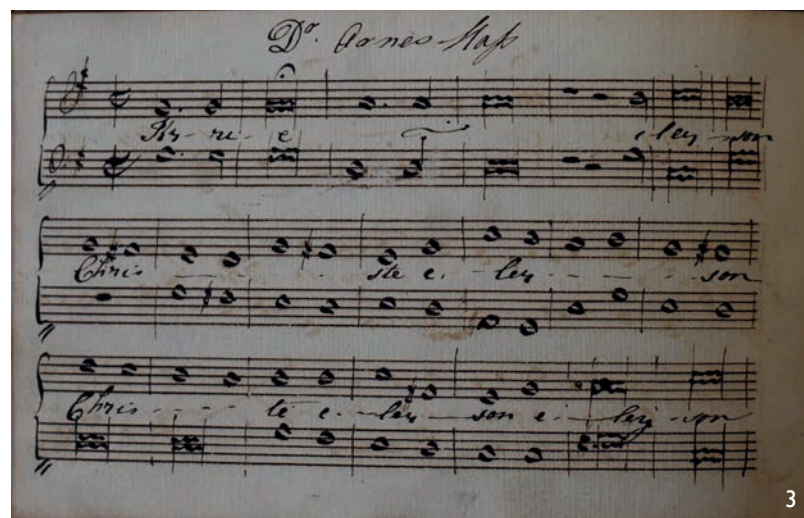 Dr. Arnes Mass
Ky - ri - e e ley - son
Chris - - - - - ste e - ley - - - - - son
Chris - - - - te e - ley - son e - ley - son
3